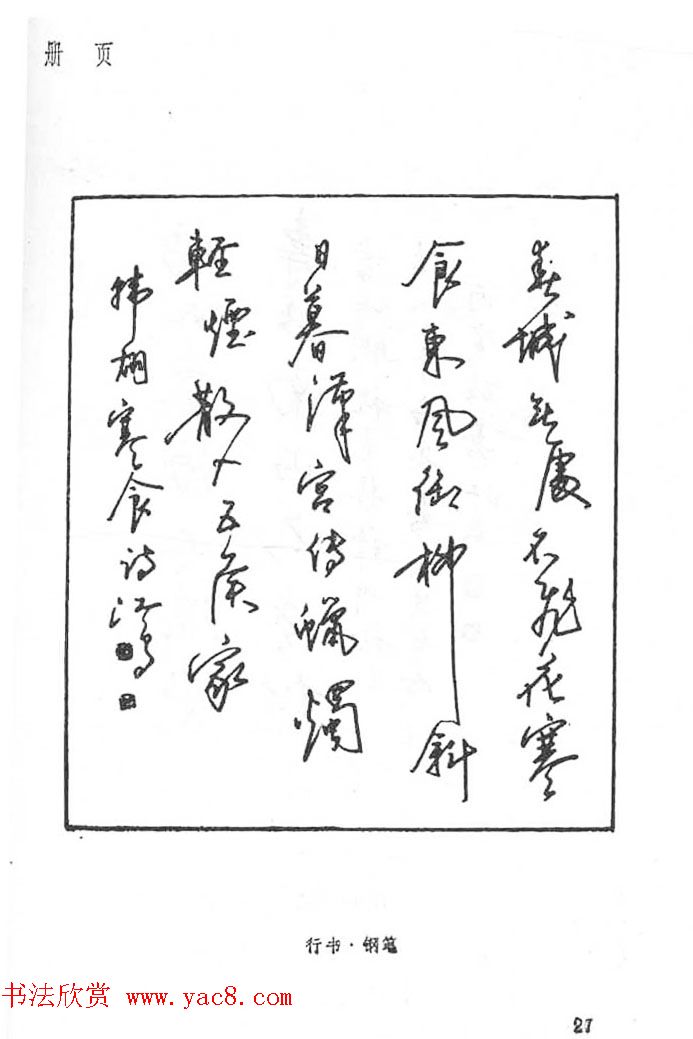 册 页
春城無處不飛花寒
食東風御柳斜
日暮漢宮傳蠟燭
輕煙散入五侯家
韩翃寒食诗江鸟
行书·钢笔
书法欣赏 www.yac8.com
27